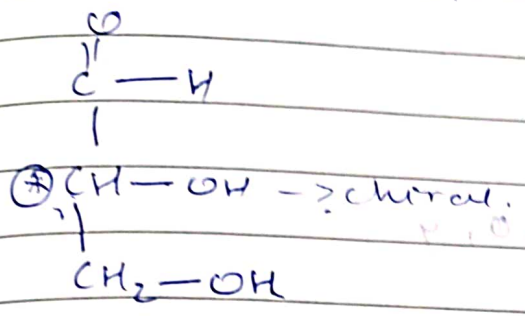 O
C — H
* CH — OH -> chiral.
CH₂ — OH